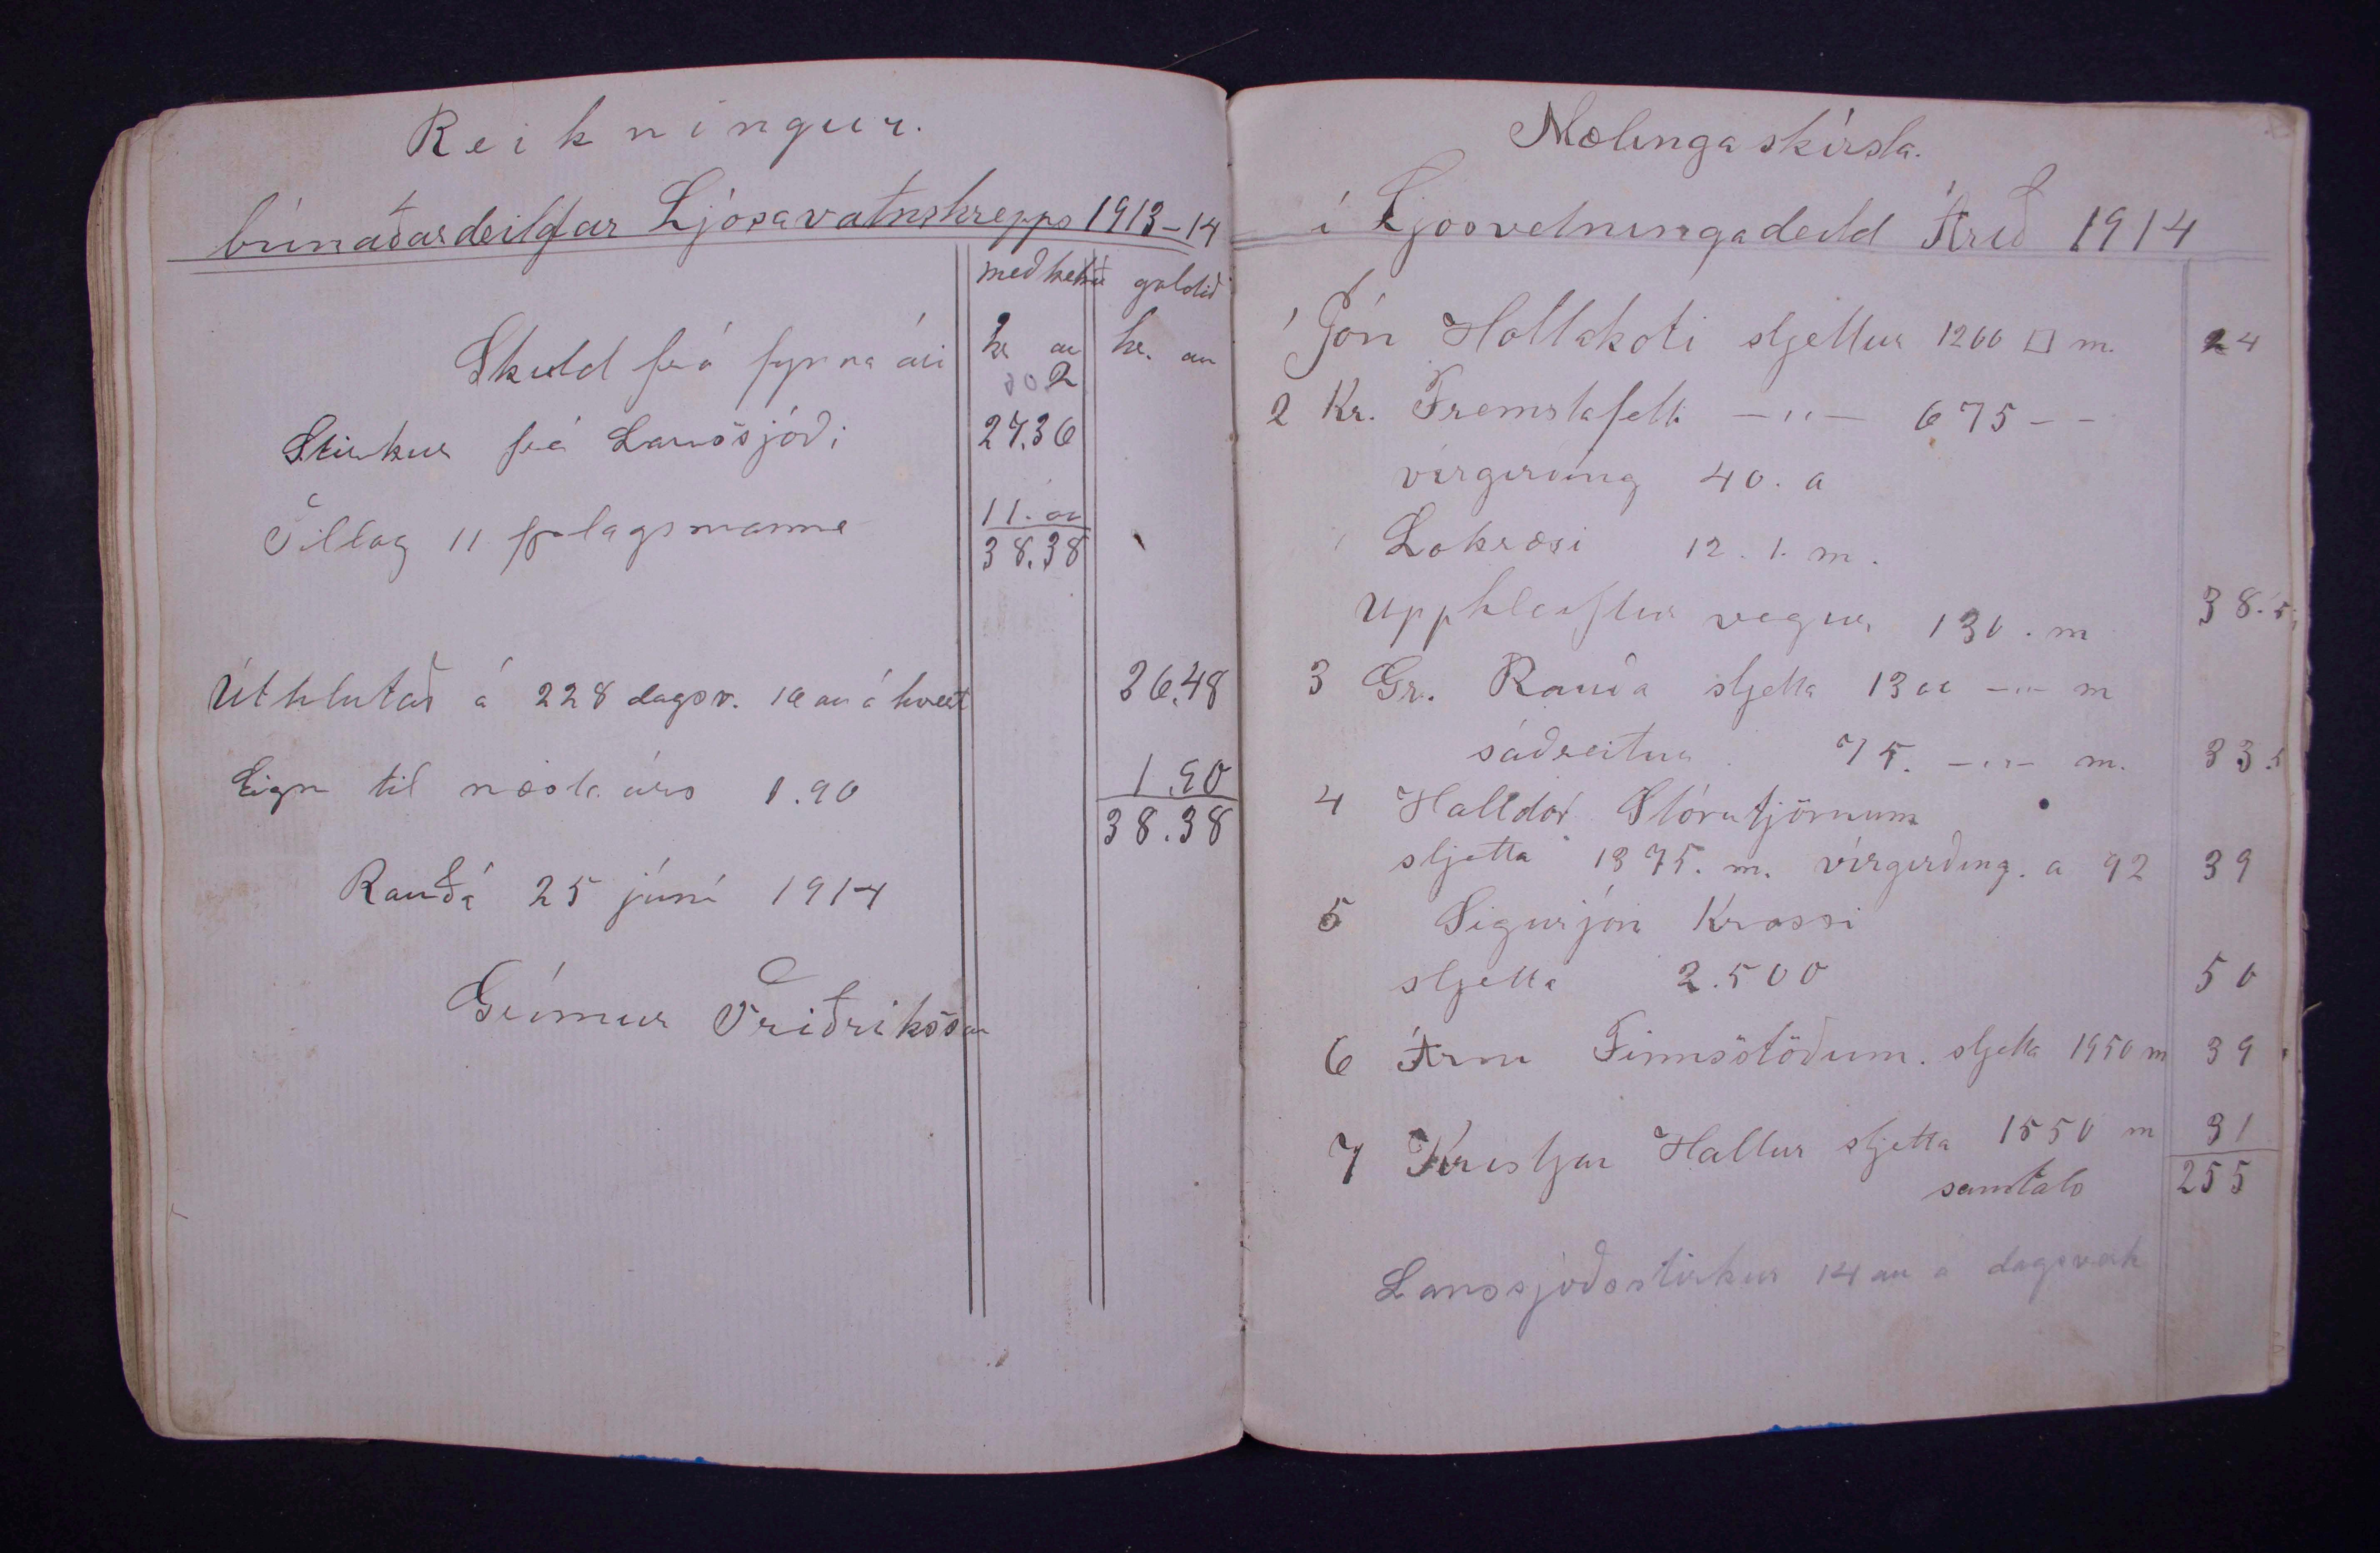 Reikningur.
búnaðardeildar Ljósavatnshrepps 1913-14
meðtekið galdið
kr au kr. au
Skuld frá fyrra ári 2
Stirkur frá Lanssjóði 27.36
Tillag 11 fjelagsmanna 11. 00
38.38
Úthlutað á 228 dagsv. 16 au á hvert 36.48
Eign til næsta árs 1.90 1.90
38.38
Rauðá 25 júní 1914
Grímur Friðriksson
Mælingaskírsla.
í Ljosvetningadeild Árið 1914
1 Jón Hallakoti sljettur 1200 □ m. 24
2 Kr. Fremstafelli —"— 675 - -
vírgirðing 40. a
Lokræsi 12. l. m.
Upphleiftur vegur 130. m 38.5
3 Gr. Rauða sljetta 1300 -"- m
sáðreitur 75. -"- m. 33.5
4 Halldór Stórutjörnum
sljetta 1375. m. vírgirðing. a 92 39
5 Sigurjón Krossi
sljetta 2.500 50
6 Árni Finnsstöðum. sljetta 1950 m 39
7 Kristjan Hallur sljetta 1550 m 31
samtals 255
Lanssjóðsstirkur 14 au á dagsverk